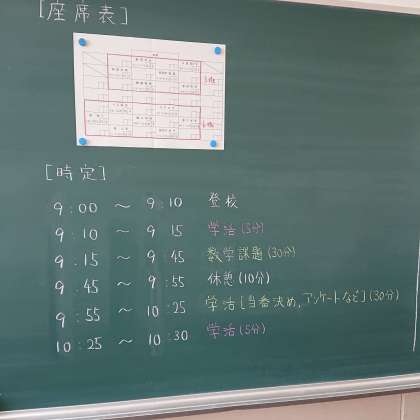 [座席表]
[時定]
9:00 ～ 9:10 登校
9:10 ～ 9:15 学活(5分)
9:15 ～ 9:45 数学課題(30分)
9:45 ～ 9:55 休憩(10分)
9:55 ～ 10:25 学活[当番決め,アンケートなど](30分)
10:25 ～ 10:30 学活(5分)